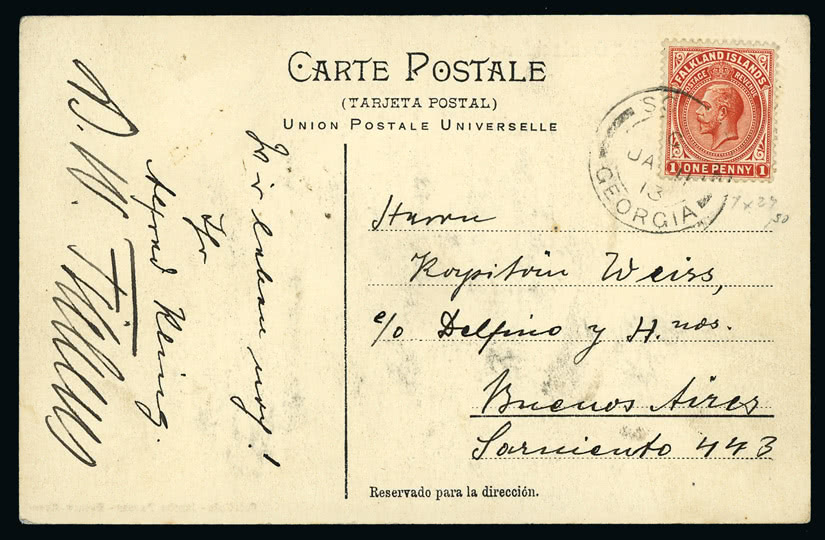 CARTE POSTALE
(TARJETA POSTAL)
UNION POSTALE UNIVERSELLE
FALKLAND ISLANDS
POSTAGE REVENUE
1 ONE PENNY 1
GEORGIA
13
Herrn
Kapitän Weiss,
c/o Delfino y H.nos.
Buenos Aires
Sarmiento 443
Reservado para la dirección.
Wir leben noch!
Ihr
Alfred Kling.